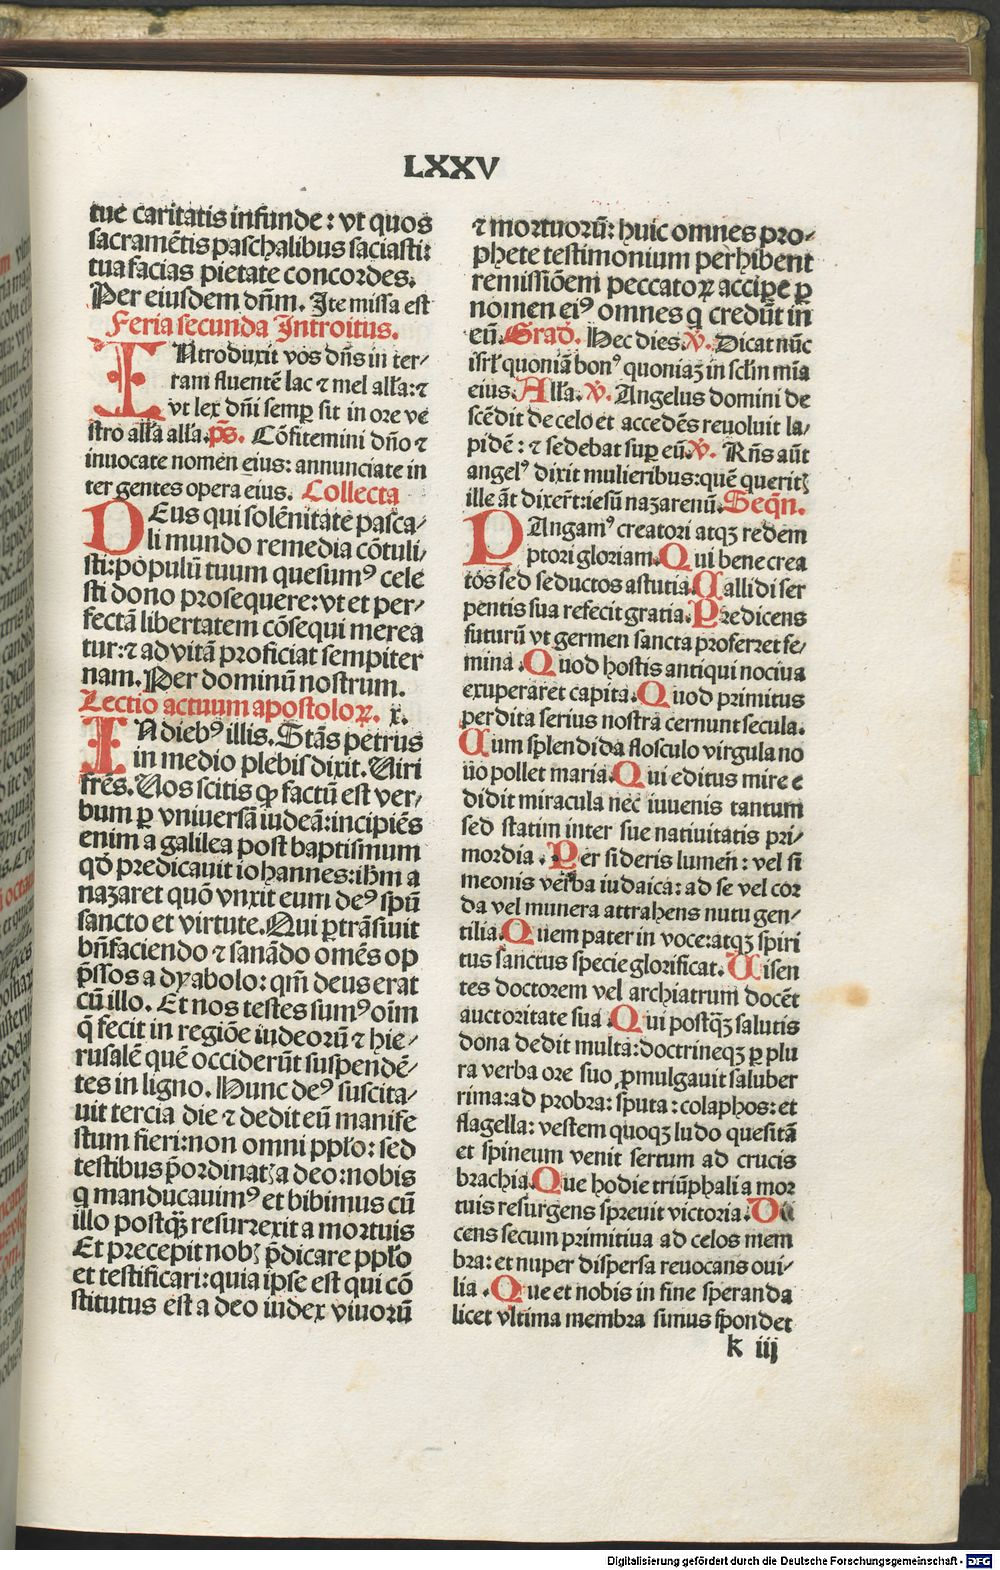 LXXV
tue caritatis infunde: vt quos
sacramētis paschalibus saciasti:
tua facias pietate concordes.
Per eiusdem dn̄m. Ite missa est
Feria secunda Introitus.
INtroduxit vos dn̄s in ter/
ram fluentē lac ⁊ mel all̄a: ⁊
vt lex dn̄i semꝑ sit in ore ve
stro all̄a all̄a. p̄s. Cōfitemini dn̄o ⁊
inuocate nomen eius: annunciate in
ter gentes opera eius. Collecta
DEus qui solēnitate pasca/
li mundo remedia cōtuli/
sti: populū tuum quesumꝰ cele
sti dono prosequere: vt et per/
fectā libertatem cōsequi merea
tur: ⁊ ad vitā proficiat sempiter
nam. Per dominū nostrum.
Lectio actuum apostoloꝝ. x.
IN diebꝰ illis. Stās petrus
in medio plebis dixit. Uiri
frēs. Uos scitis ꝙ factū est ver/
bum ꝑ vniuersā iudeā: incipiēs
enim a galilea post baptismum
qd̄ predicauit iohannes: ihm̄ a
nazaret quō vnxit eum deꝰ spū
sancto et virtute. Qui ꝑtrāsiuit
bn̄faciendo ⁊ sanādo omēs op
p̄ssos a dyabolo: qm̄ deus erat
cū illo. Et nos testes sumꝰ oīm
q̄ fecit in regiōe iudeorū ⁊ hie/
rusalē quē occiderūt suspendē/
tes in ligno. Hunc deꝰ suscita/
uit tercia die ⁊ dedit eū manife
stum fieri: non omni pplo: sed
testibus p̄ordinatꝫ a deo: nobis
q̄ manducauimꝰ et bibimus cū
illo postqꝫ resurrexit a mortuis
Et precepit nobꝫ p̄dicare pplo
et testificari: quia ipse est qui cō
stitutus est a deo iudex viuorū
⁊ mortuorū: huic omnes pro/
phete testimonium perhibent
remissiōem peccatoꝝ accipe ꝑ
nomen eiꝰ omnes q̄ credūt in
eū. Grad̄. Hec dies. V̄. Dicat nūc
isrl̄ quoniā bonꝰ quoniaꝫ in scl̄m mīa
eius. All̄a. V̄. Angelus domini de
scēdit de celo et accedēs reuoluit la/
pidē: ⁊ sedebat suꝑ eū. V̄. Rn̄s aūt
angelꝰ dixit mulieribus: quē queritꝫ
ille āt dixer̄t: iesū nazarenū. Seqn̄.
PAngamꝰ creatori atqꝫ redem
ptori gloriam. Qui bene crea
tos sed seductos astutia. Callidi ser
pentis sua refecit gratia. Predicens
futurū vt germen sancta proferret fe/
mina. Quod hostis antiqui nociua
exuperaret capita. Quod primitus
perdita serius nostra cernunt secula.
Cum splendida flosculo virgula no
uo pollet maria. Qui editus mire e
didit miracula nec iuuenis tantum
sed statim inter sue natiuitatis pri/
mordia. Per sideris lumen: vel si
meonis verba iudaica: ad se vel cor
da vel munera attrahens nutu gen/
tilia. Quem pater in voce: atqꝫ spiri
tus sanctus specie glorificat. Uisen
tes doctorem vel archiatrum docēt
auctoritate sua. Qui postqꝫ salutis
dona dedit multa: doctrineqꝫ ꝑ plu
ra verba ore suo ꝓmulgauit saluber
rima: ad probra: sputa: colaphos: et
flagella: vestem quoqꝫ ludo quesitā
et spineum venit sertum ad crucis
brachia. Que hodie triūphali a mor
tuis resurgens spreuit victoria. Du
cens secum primitiua ad celos mem
bra: et nuper dispersa reuocans oui/
lia. Que et nobis in fine speranda
licet vltima membra simus spondet
k iij
Digitalisierung gefördert durch die Deutsche Forschungsgemeinschaft - DFG